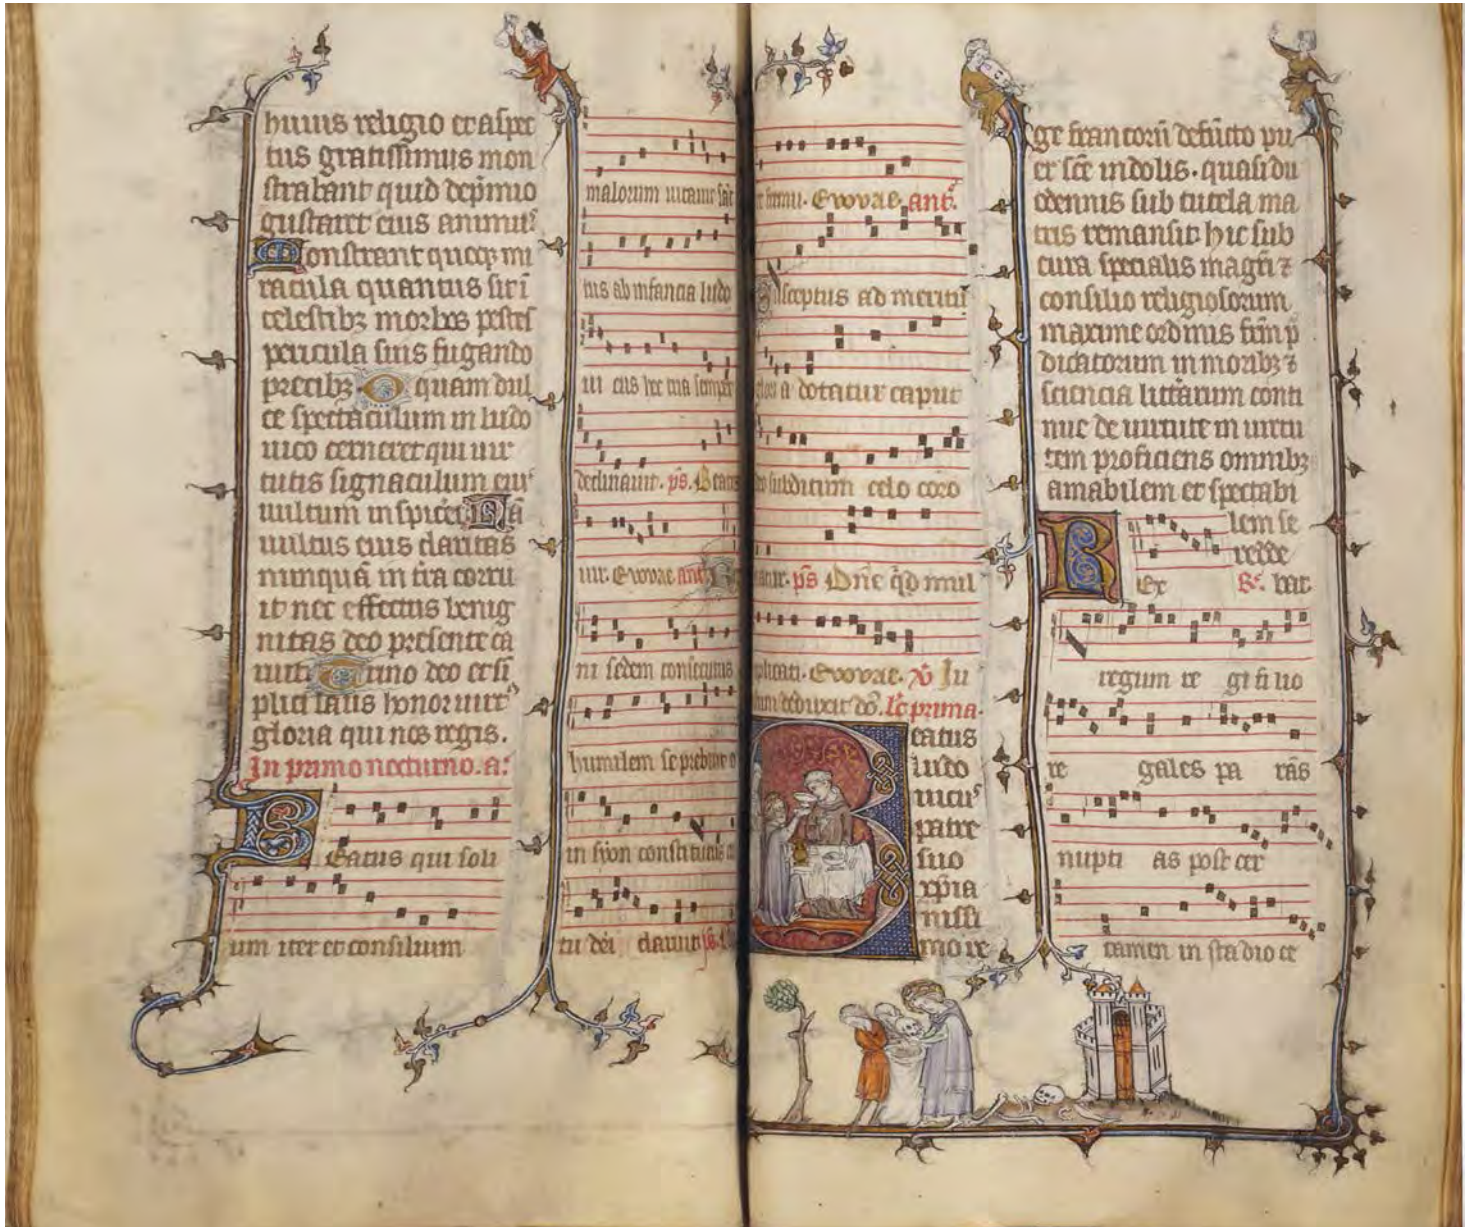 huius religio et aspec
tus gratissimus mon
strabant quid dep̃mio
gustaret eius animus
Monstrant quoqꝫ mi
racula quantus sit ĩ
celestibꝫ morbos pestes
pericula suis fugando
precibꝫ O quam dul
ce spectaculum in ludo
uico cerneret qui uir
tutis signaculum eius
uultum inspiceret Nã
uultus eius claritas
nunquã in tr̃a corru
it nec effectus benig
nitas deo presente ca
uit Trino deo et si
plici laus honor uirt
gloria qui nos regis.
In primo nocturno. a.
Beatus qui soli
um iter et consilium
malorum uitauit
tus ab infancia ludo
ui cus hec tria semper
declinauit. ps. Beatus
uir. Evovae ant
ni sedem consecutus
humilem se prebuit
in syon constitutus
tu dei
firmi. Evovae. ant.
Susceptus ad meritũ
a dotatur caput
subditum celo coro
natur. p̃s Dñe q̃d mul
tiplicati. Evovae. V̉ Iu
stum deduxit dñs. lc̃ prima.
Beatus
ludo
uicus
patre
suo
xp̃ia
nissi
mo re
ge francorũ defũcto pu
er sc̃e indolis. quasi du
odennis sub tutela ma
tris remansit. hic sub
cura specialis magr̃i ⁊
consilio religiosorum
maxime ordinis fr̃m p̃
dicatorum in moribꝫ ⁊
sciencia litt̃arum conti
nue de uirtute in uirtu
tem proficiens omnibꝫ
amabilem et spectabi
lem se
redde
bat.
R̉.
Rex
regum re gi filio
re gales pa rãs
nupti as post cer
tamen in stadio ce